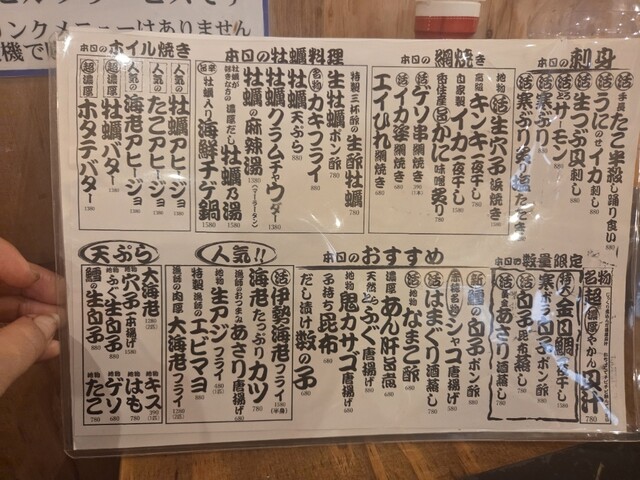 ンクメニューはありません
本日の刺身
活 手長たこ半殺し踊り食い 880
活 うにのせイカ刺し 880
活 生つぶ貝刺し
活 サーモン 880
活 寒ぶり
活 寒ぶり炙り塩たたき
本日の網焼き
地物 活 生穴子浜焼き 1580
高級 キンキ一夜干し
自家製 イカ一夜干し 1580
香住産 かに味噌炙り 780
活 ゲソ串網焼き 390
活 イカ姿網焼き 680
エイひれ網焼き 680
本日の牡蠣料理
特製三杯酢の生酢牡蠣 780
生牡蠣ポン酢 780
名物 カキフライ 880
牡蠣天ぷら 880
牡蠣クラムチャウダー 1380
牡蠣の麻辣湯(マーラータン) 1380
牡蠣が好きな方の濃厚だし牡蠣乃湯 1580
旨辛 牡蠣入り海鮮チゲ鍋 1580
本日のホイル焼き
人気の牡蠣アヒージョ 1380
人気のたこアヒージョ 1380
人気の海老アヒージョ 1380
濃厚 牡蠣バター 1380
超濃厚 ホタテバター 1380
本日の数量限定
名物 超濃厚やかん貝汁 780
特大 金目鯛一夜干し 1580
寒ボラ白子ポン酢 880
活 白子昆布蒸し 780
活 あさり酒蒸し 780
本日のおすすめ
新 鱈の白子ポン酢 880
赤箱名物 シャコ唐揚げ 780
活 はまぐり酒蒸し 780
活 地物 なまこ酢 580
濃厚 あん肝旨煮 680
天然 とらふぐ唐揚げ 680
地物 鬼カサゴ唐揚げ 680
子持ち昆布 680
だし漬け数の子 680
人気!!
活 伊勢海老フライ 1580(半身)
海老たっぷりカツ 780
漁師のおつまみ あさり唐揚げ 680
地物 生アジフライ 480
特製 漁師のエビマヨ 880
漁師の肉厚 大海老フライ 1280
天ぷら
大海老 1280
地物 穴子一本揚げ 1580
地物 ふぐ生白子 880
鱈の生白子 880
地物 キス 390
地物 はも 780
地物 ゲソ 780
地物 たこ 780